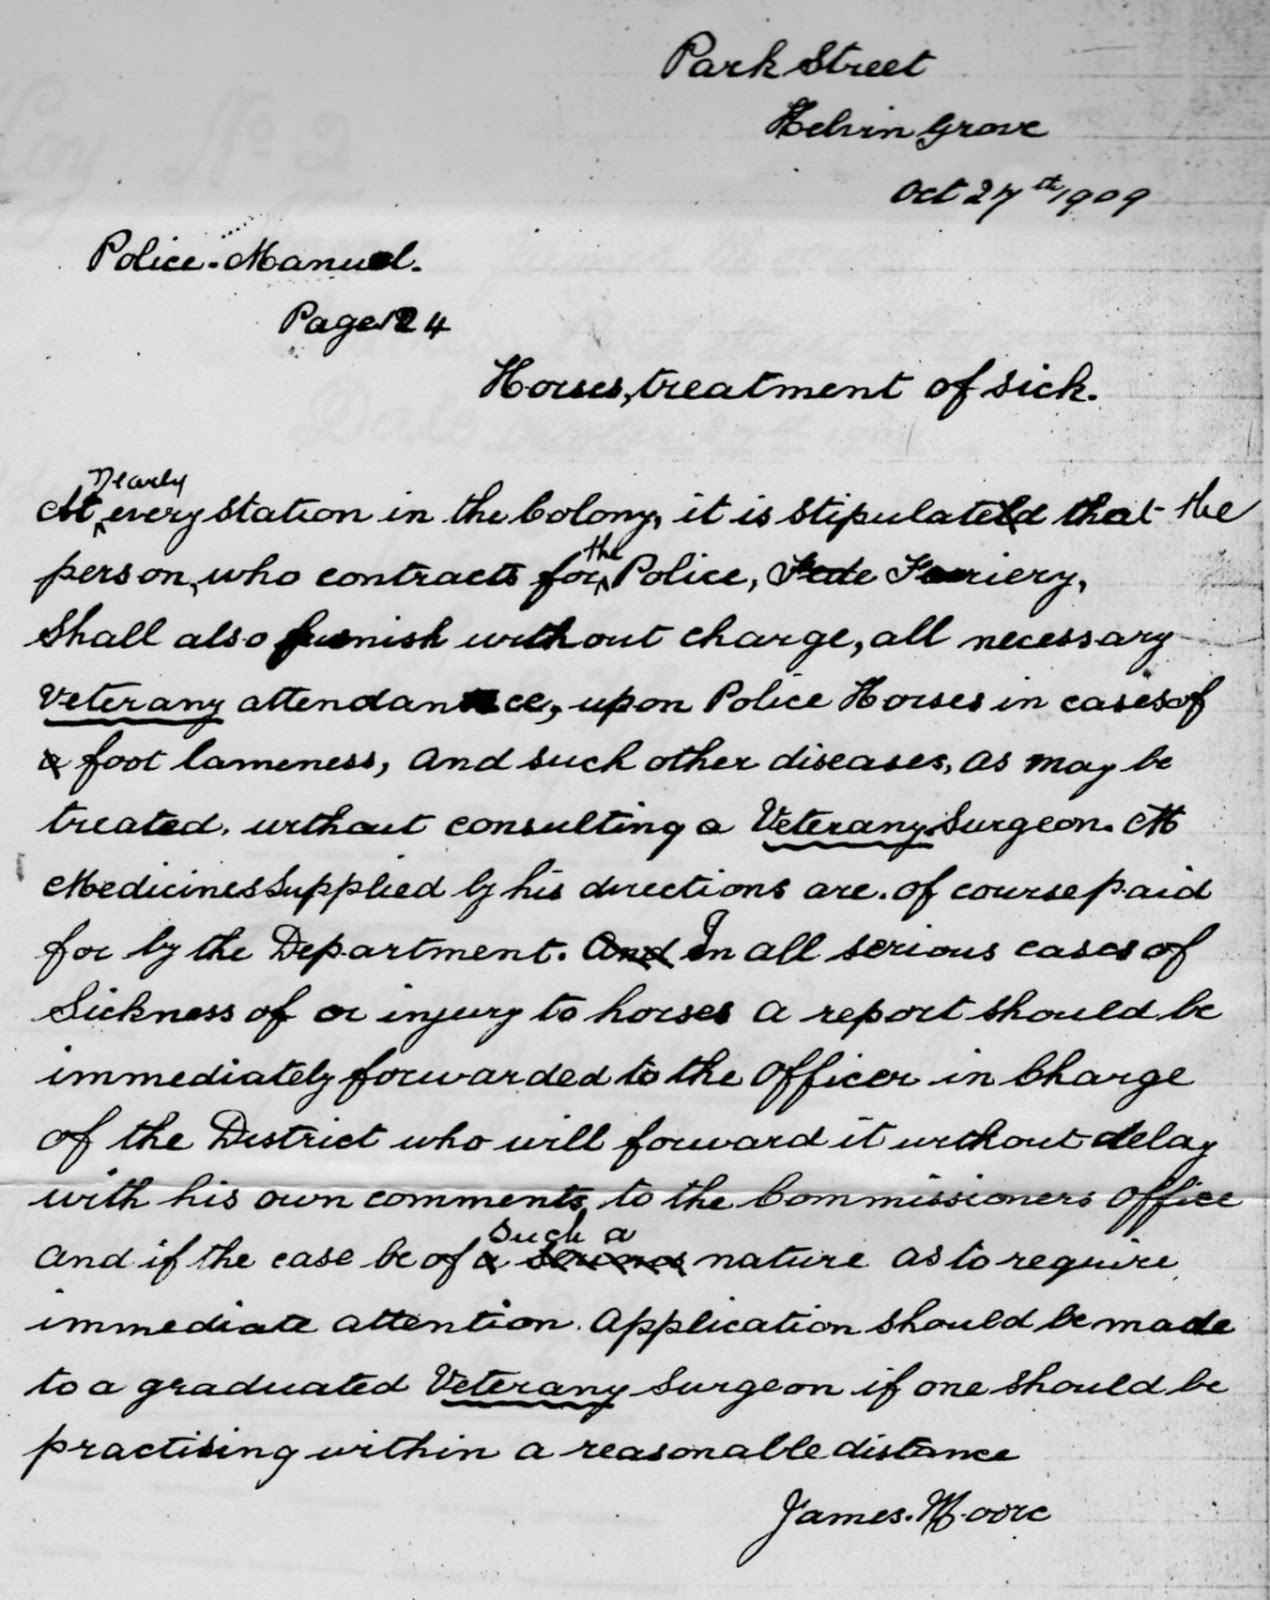 Park Street
Kelvin Grove
Oct 27th 1909
Police. Manual.
Page 124
Horses, treatment of sick.
At nearly every station in the Colony, it is stipulated that the
person, who contracts for the Police, Farriery,
Shall also furnish without charge, all necessary
Veterany attendance, upon Police Horses in cases of
a foot lameness, and such other diseases, as may be
treated. without consulting a Veterany Surgeon.
Medicines Supplied by his directions are. of course paid
for by the Department. And In all serious cases of
Sickness of or injury to horses a report should be
immediately forwarded to the Officer in Charge
of the District who will forward it without delay
with his own comments, to the Commissioners Office
and if the case be of a serious such a nature as to require
immediate attention. Application should be made
to a graduated Veterany Surgeon if one should be
practising within a reasonable distance
James. Moore